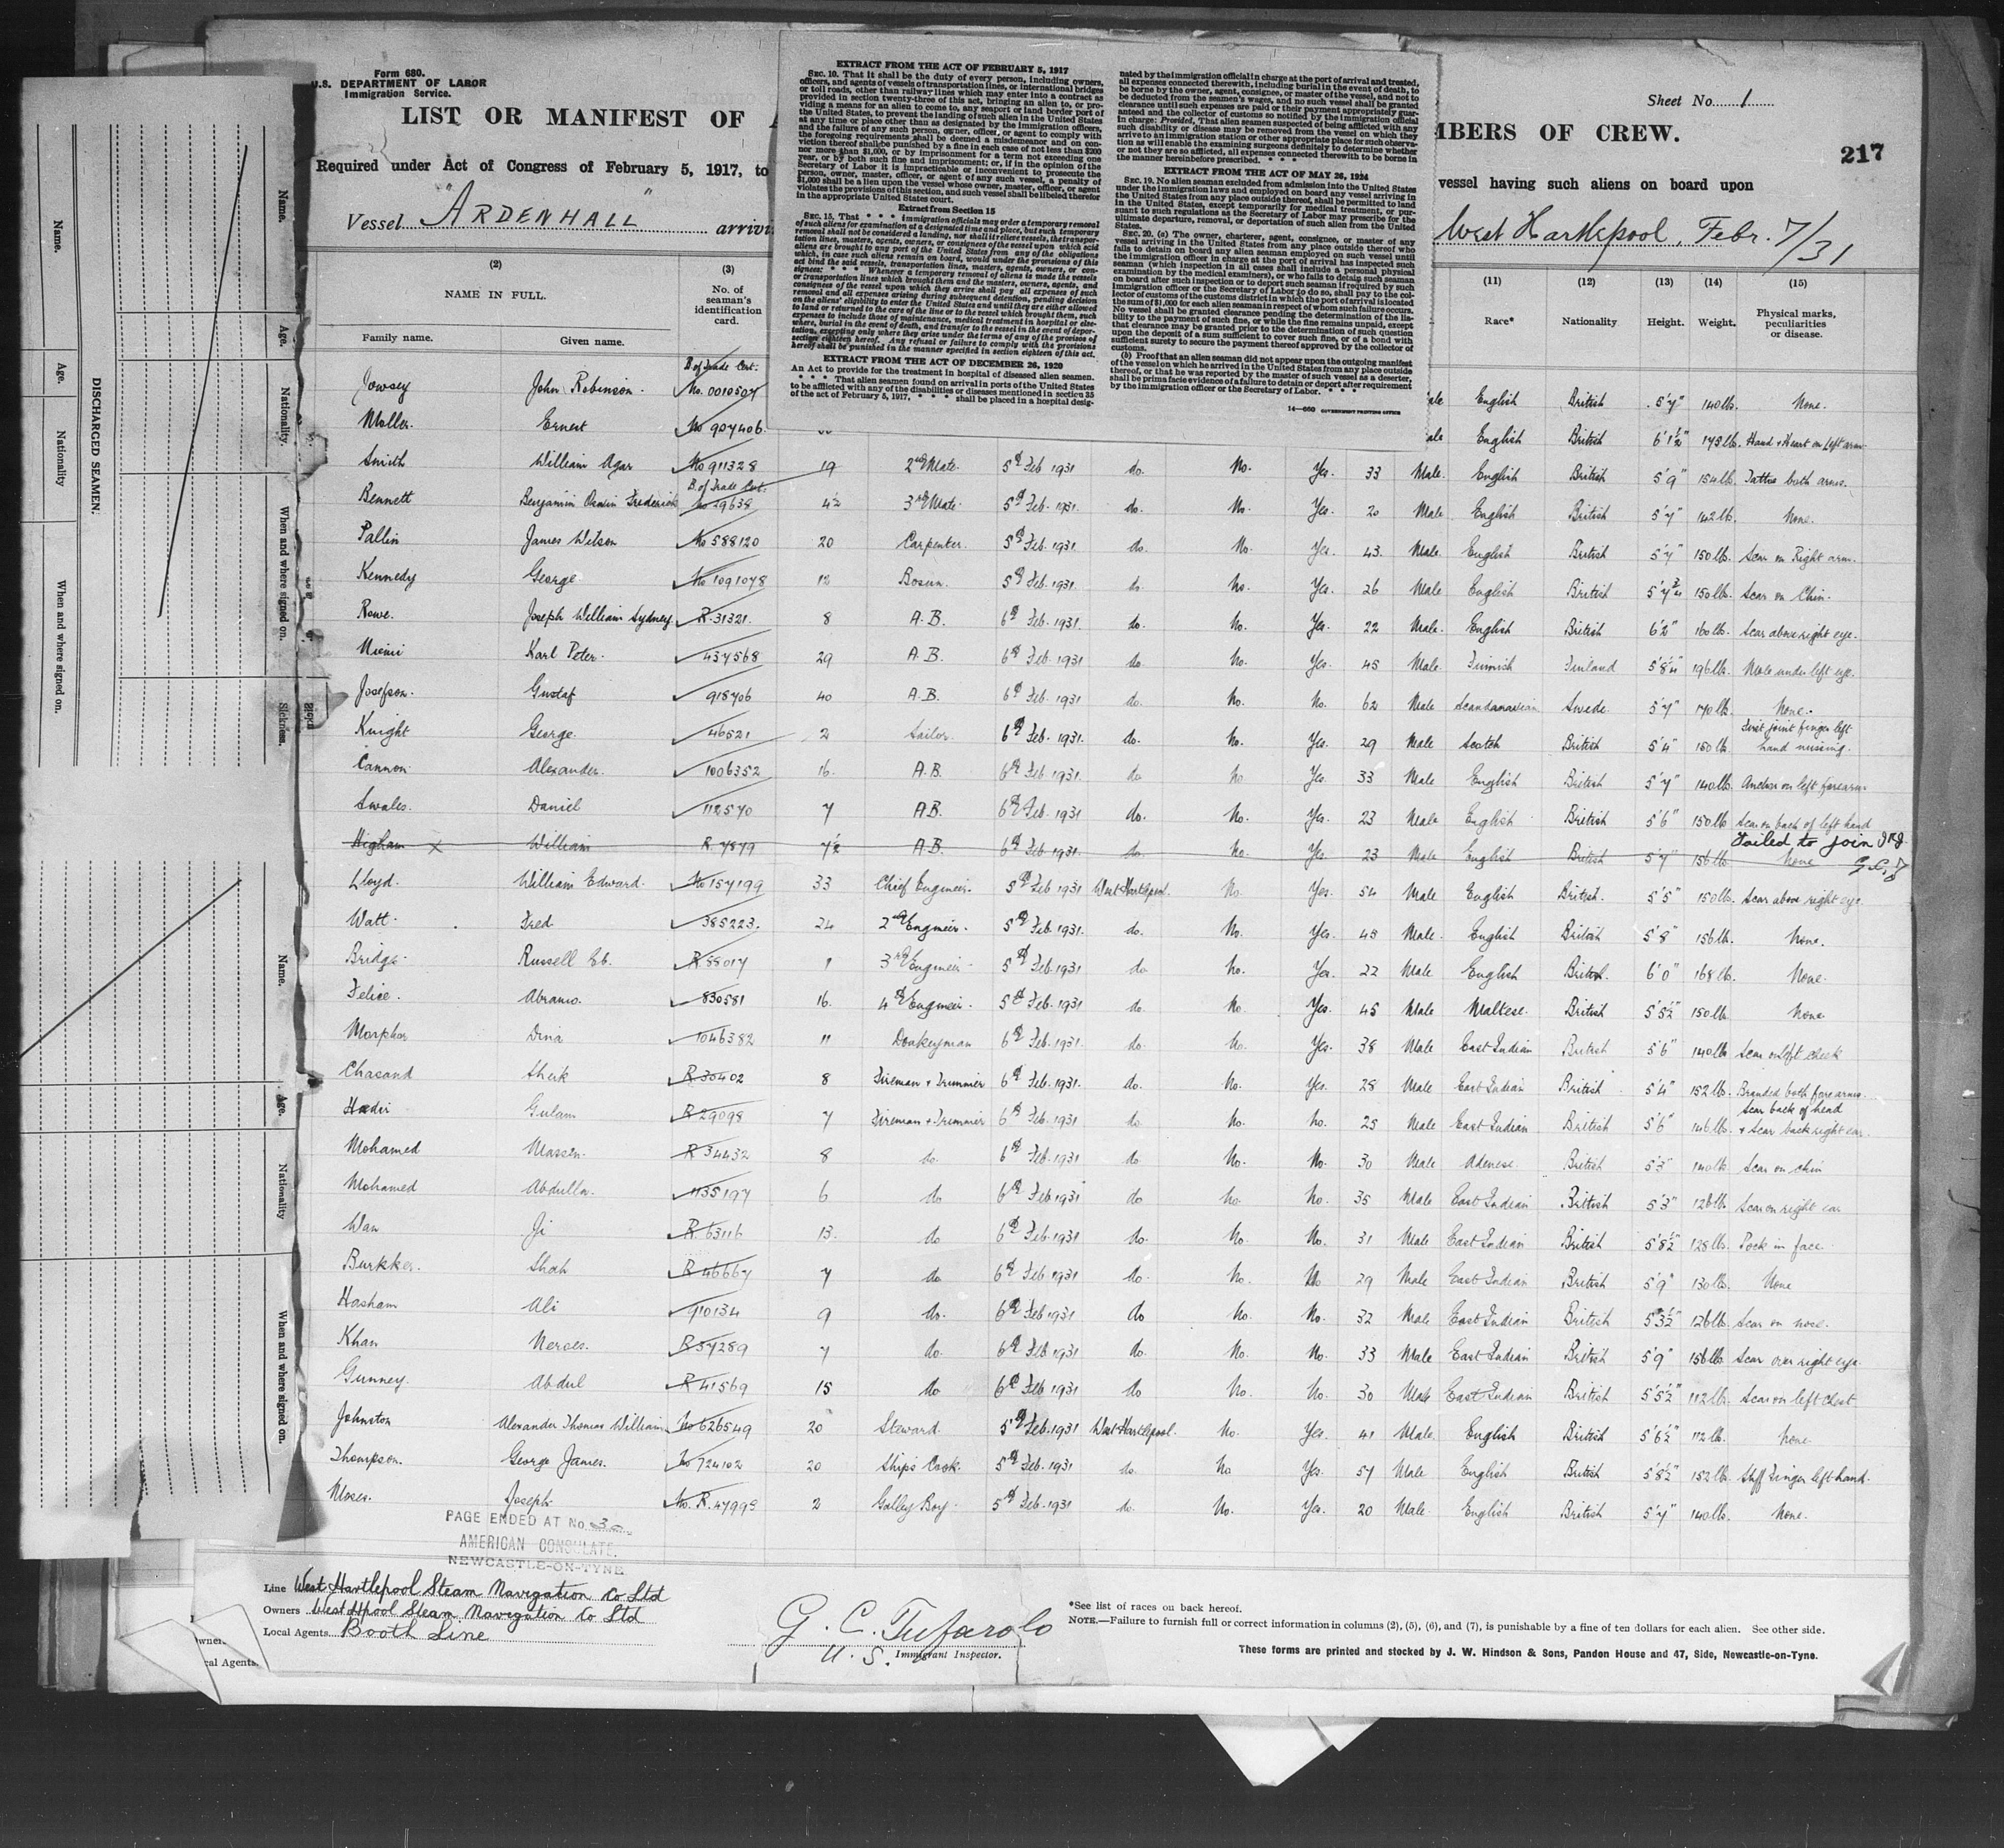 Form 680.
U.S. DEPARTMENT OF LABOR
Immigration Service.
LIST OR MANIFEST OF A
MBERS OF CREW.
Sheet No. 1
217
Required under Act of Congress of February 5, 1917, to
vessel having such aliens on board upon
Vessel "ARDENHALL" arrivi
West Hartlepool, Febr. 7/31
EXTRACT FROM THE ACT OF FEBRUARY 5, 1917
SEC. 10. That it shall be the duty of every person, including owners,
officers, and agents of vessels of transportation lines, or international bridges
or toll roads, other than railway lines which may enter into a contract as
provided in section twenty-three of this act, bringing an alien to, or pro-
viding a means for an alien to come to, any seaport or land border port of
the United States, to prevent the landing of such alien in the United States
at any time or place other than as designated by the immigration officers,
and the failure of any such person, owner, officer, or agent to comply with
the foregoing requirements shall be deemed a misdemeanor and on con-
viction thereof shall be punished by a fine in each case of not less than $200
nor more than $1,000, or by imprisonment for a term not exceeding one
year, or by both such fine and imprisonment; or, if in the opinion of the
Secretary of Labor it is impracticable or inconvenient to prosecute the
person, owner, master, officer, or agent of any such vessel, a penalty of
$1,000 shall be a lien upon the vessel whose owner, master, officer, or agent
violates the provisions of this section, and such vessel shall be libeled therefor
in the appropriate United States court.
Extract from Section 15
SEC. 15. That * * * immigration officials may order a temporary removal
of such aliens for examination at a designated time and place, but such temporary
removal shall not be considered a landing, nor shall it relieve vessels, the transpor-
tation lines, masters, agents, owners, or consignees of the vessel upon which
act bind the said vessels, transportation lines, masters, agents, owners, or con-
signees: * * * Whenever a temporary removal of aliens is made the vessels
or transportation lines which brought them and the masters, owners, agents, and
consignees of the vessel upon which they arrive shall pay all expenses of such
removal and all expenses arising during subsequent detention, pending decision
on the aliens' eligibility to enter the United States and until they are either allowed
to land or returned to the care of the line or to the vessel which brought them, such
expenses to include those of maintenance, medical treatment in hospital or else-
where, burial in the event of death, and transfer to the vessel in the event of depor-
tation, excepting only where they arise under the terms of any of the provisos of
section eighteen hereof. Any refusal or failure to comply with the provisions
hereof shall be punished in the manner specified in section eighteen of this act.
EXTRACT FROM THE ACT OF DECEMBER 26, 1920
An Act to provide for the treatment in hospital of diseased alien seamen.
* * * That alien seamen found on arrival in ports of the United States
to be afflicted with any of the disabilities or diseases mentioned in section 35
of the act of February 5, 1917, * * * shall be placed in a hospital desig-
nated by the immigration official in charge at the port of arrival and treated,
all expenses connected therewith, including burial in the event of death, to
be borne by the owner, agent, consignee, or master of the vessel, and not to
be deducted from the seamen's wages, and no such vessel shall be granted
clearance until such expenses are paid or their payment appropriately guar-
anteed and the collector of customs so notified by the immigration official
in charge: Provided, That alien seamen suspected of being afflicted with any
such disability or disease may be removed from the vessel on which they
arrive to an immigration station or other appropriate place for such observa-
tion as will enable the examining surgeons definitely to determine whether
or not they are so afflicted, all expenses connected therewith to be borne in
the manner hereinbefore prescribed. * * *
EXTRACT FROM THE ACT OF MAY 26, 1924
SEC. 19. No alien seaman excluded from admission into the United States
under the immigration laws and employed on board any vessel arriving in
the United States from any place outside thereof, shall be permitted to land
in the United States, except temporarily for medical treatment, or pur-
suant to such regulations as the Secretary of Labor may prescribe for the
ultimate departure, removal, or deportation of such alien from the United
States.
SEC. 20. (a) The owner, charterer, agent, consignee, or master of any
vessel arriving in the United States from any place outside thereof who
fails to detain on board any alien seaman employed on such vessel until
the immigration officer in charge at the port of arrival has inspected such
seaman (which inspection in all cases shall include a personal physical
examination by the medical examiners), or who fails to detain such seaman
on board after such inspection or to deport such seaman if required by such
immigration officer or the Secretary of Labor to do so, shall pay to the col-
lector of customs of the customs district in which the port of arrival is located
the sum of $1,000 for each alien seaman in respect of whom such failure occurs.
No vessel shall be granted clearance pending the determination of the lia-
bility to the payment of such fine, or while the fine remains unpaid, except
that clearance may be granted prior to the determination of such question
upon the deposit of a sum sufficient to cover such fine, or of a bond with
sufficient surety to secure the payment thereof approved by the collector of
customs.
(b) Proof that an alien seaman did not appear upon the outgoing manifest
of the vessel on which he arrived in the United States from any place outside
thereof, or that he was reported by the master of such vessel as a deserter,
shall be prima facie evidence of a failure to detain or deport after requirement
by the immigration officer or the Secretary of Labor. * * *
14—660 GOVERNMENT PRINTING OFFICE
(2) (3) (11) (12) (13) (14) (15)
NAME IN FULL. No. of seaman's identification card. Race* Nationality Height. Weight. Physical marks, peculiarities or disease.
Family name. Given name.
B of Trade Cert.
Jowsey John Robinson. No. 0010507 ale English British 5'7" 140lb. None.
Moller. Ernest No 907406 ale English British 6'1½" 173lb. Hand + Heart on left arm
Smith William Agar No 911328 19 2nd Mate. 5th Feb 1931 do. No. Yes. 33 Male. English British 5'9" 154lb. Tattoo both arms.
B. of Trade Cert.
Bennett Benjamin Frederick No 29638 4½ 3rd Mate 5th Feb. 1931. do. No. Yes. 20 Male English British 5'7" 142lb. None.
Pallin James Wilson No 588120 20 Carpenter. 5th Feb. 1931. do. No. Yes. 43. Male. English British 5'7" 150lb. Scar on Right arm.
Kennedy George No 1091078 12 Bosun. 5th Feb. 1931. do. No. Yes. 26 Male English British 5'7¾ 150lb. Scar on Chin.
Rowe. Joseph William Sydney. R.31321. 8 A.B. 6th Feb. 1931. do. No. Yes. 22 Male. English British 6'2" 160lb. Scar above right eye.
Niemi Karl Peter. 437568 29 A.B. 6th Feb. 1931 do. No. Yes. 45 Male Finnish Finland 5'8¼" 196lb. Mole under left eye.
Josefson. Gustaf 918706 40 A.B. 6th Feb. 1931 do. No. No. 62 Male Scandanavian Swede. 5'7" 170lb. None.
Knight George. 46521 2 Sailor. 6th Feb. 1931. do. No. Yes. 29 Male Scotch British 5'4" 150lb. First joint finger left hand missing.
Cannon Alexander. 1006352 16. A.B. 6th Feb. 1931. do No Yes. 33 Male English British 5'7" 140lb. Anchor on left forearm
Swales. Daniel 112570 7 A.B. 6th Feb. 1931 do. No. Yes. 23 Male English British 5'6" 150lb Scar on back of left hand
Failed to join
Higham X William R 7879 7½ A.B. 6th Feb. 1931 do No. Yes. 23 Male English British 5'7" 156lb None G.C.T
Lloyd. William Edward. No 157199 33 Chief Engineer. 5th Feb 1931 West Hartlepool. No. Yes. 54 Male English British. 5'5" 150lb. Scar above right eye.
Watt. Fred 385223. 24 2nd Engineer. 5th Feb. 1931. do. No. Yes. 43 Male. English British 5'8" 156lb. None.
Bridge Russell R 58017 1 3rd Engineer 5th Feb. 1931 do No. Yes. 22 Male English British. 6'0" 168lb. None.
Felice. Abramo. 830581 16. 4th Engineer. 5th Feb. 1931. do No. Yes. 45 Male Maltese. British 5'5½" 150lb. None
Dina 1046382 11 Donkeyman 6th Feb. 1931. do. No. Yes. 38 Male East Indian British 5'6" 140lb Scar on left cheek
Chasand Sheik R 30402 8 Fireman + Trimmer 6th Feb. 1931. do. No. Yes. 28 Male East Indian British 5'4" 152lb. Branded both forearms.
Gulam R 29098 7 Fireman + Trimmer 6th Feb. 1931 do No. No. 25 Male East Indian British 5'6" 146lb. Scar back of head + Scar back right ear.
Mohamed Massen. R 34432 8 do. 6th Feb. 1931 do No. No. 30 Male Adenese. British 5'3" 140lb Scar on chin
Mohamed Abdulla. 1135197 6 do 6th Feb 1931 do No. No. 35 Male East Indian British 5'3" 126lb. Scar on right ear
Wan Ji R. 63116 13. do 6th Feb. 1931 do. No. No. 31 Male East Indian British 5'8½" 128lb. Pock in face.
Burkker. Shah R 46667 7 do 6th Feb 1931 do. No. No 29 Male East Indian British 5'9" 130lb. None
Hasham Ali 910134 9 do. 6th Feb 1931 do No. No. 32 Male East Indian British 5'3½" 126lb. Scar on nose.
Khan R 57289 7 do. 6th Feb 1931 do. No. No. 33 Male East Indian British 5'9" 156lb. Scar over right eye
Gunney. Abdul R 41569 15 do 6th Feb 1931 do No. No. 30 Male East Indian British 5'5½" 112lb. Scar on left chest
Johnston Alexander Thomas William No 626549 20 Steward. 5th Feb. 1931 West Hartlepool. No. Yes. 41 Male. English British 5'6½" 112lb. None
Thompson. George James. No 724102 20 Ships Cook. 5th Feb. 1931 do. No Yes. 57 Male English British 5'8½" 152lb. Stiff Finger left hand.
Moses. Joseph No. R. 47999 2 Galley Boy. 5th Feb. 1931 do. No. Yes. 20 Male. English British 5'7" 140lb. None.
PAGE ENDED AT No. 30
AMERICAN CONSULATE.
NEWCASTLE-ON-TYNE.
Line West Hartlepool Steam Navigation Co Ltd
Owners West Hpool Steam Navigation Co Ltd
Local Agents Booth Line
wners
cal Agents
G. C. Tufarolo
U. S. Immigrant Inspector.
*See list of races on back hereof.
NOTE.—Failure to furnish full or correct information in columns (2), (5), (6), and (7), is punishable by a fine of ten dollars for each alien. See other side.
These forms are printed and stocked by J. W. Hindson & Sons, Pandon House and 47, Side, Newcastle-on-Tyne.
DISCHARGED SEAMEN.
Name.
Age.
Nationality
When and where signed on.
Name.
Age.
Nationality.
When and where signed on.
Sickness.
Name.
Age.
Nationality
When and where signed on.